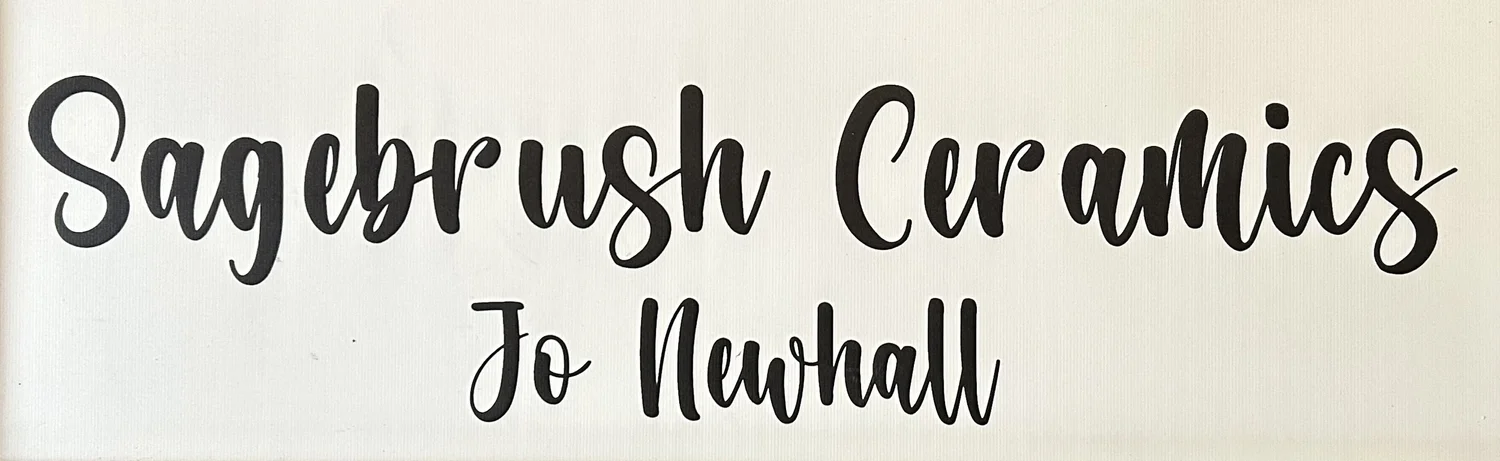 Sagebrush Ceramics
Jo Newhall